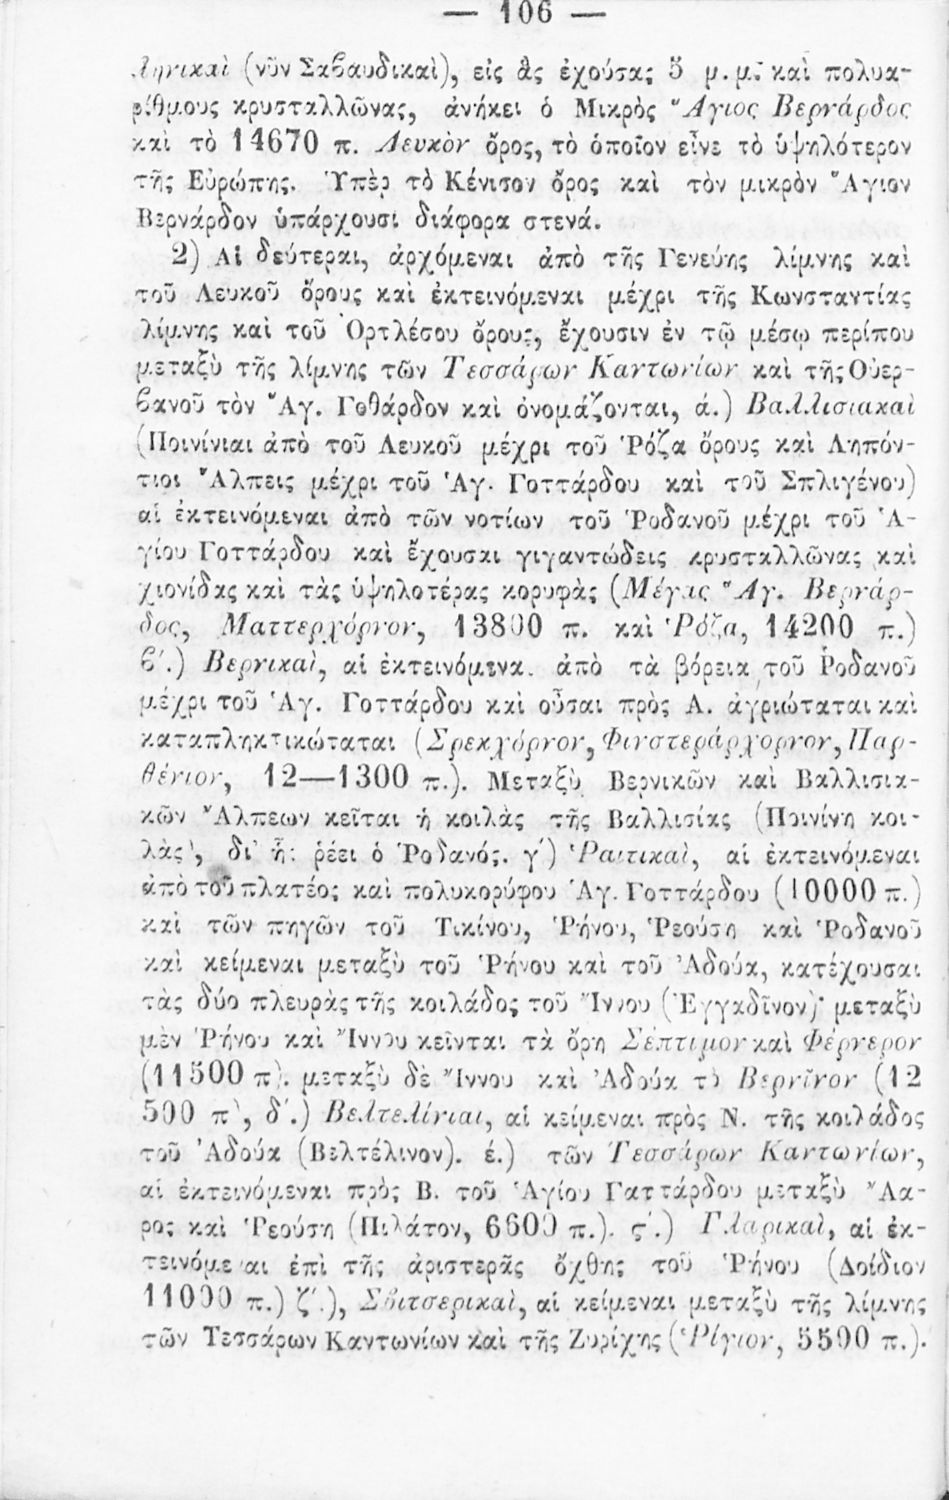 — 106 —
ληνικαὶ (νῦν Σαβαυδικαὶ), εἰς ἃς ἐχούσας 5 μ. μ. καὶ πολυα-
ρίθμους κρυσταλλῶνας, ἀνήκει ὁ Μικρὸς Ἅγιος Βερνάρδος
καὶ τὸ 14670 π. Λευκὸν ὄρος, τὸ ὁποῖον εἶνε τὸ ὑψηλότερον
τῆς Εὐρώπης. Ὑπὲρ τὸ Κένισον ὄρος καὶ τὸν μικρὸν Ἅγιον
Βερνάρδον ὑπάρχουσι διάφορα στενά.
2) Αἱ δεύτεραι, ἀρχόμεναι ἀπὸ τῆς Γενεύης λίμνης καὶ
τοῦ Λευκοῦ ὄρους καὶ ἐκτεινόμεναι μέχρι τῆς Κωνσταντίας
λίμνης καὶ τοῦ Ὀρτλέσου ὄρους, ἔχουσιν ἐν τῷ μέσῳ περίπου
μεταξὺ τῆς λίμνης τῶν Τεσσάρων Καντωνίων καὶ τῆς Οὐερ-
βανοῦ τὸν Ἅγ. Γοθάρδον καὶ ὀνομάζονται, ά.) Βαλλισιακαὶ
(Ποινίνιαι ἀπὸ τοῦ Λευκοῦ μέχρι τοῦ Ῥόζα ὄρους καὶ Ληπόν-
τιοι Ἄλπεις μέχρι τοῦ Ἁγ. Γοττάρδου καὶ τοῦ Σπλιγένου)
αἱ ἐκτεινόμεναι ἀπὸ τῶν νοτίων τοῦ Ῥοδανοῦ μέχρι τοῦ Ἁ-
γίου Γοττάρδου καὶ ἔχουσαι γιγαντώδεις κρυσταλλῶνας καὶ
χιονίδας καὶ τὰς ὑψηλοτέρας κορυφὰς (Μέγας Ἅγ. Βερνάρ-
δος, Ματτερχόρνον, 13800 π. καὶ Ῥόζα, 14200 π.)
β΄.) Βερνικαὶ, αἱ ἐκτεινόμεναι ἀπὸ τὰ βόρεια τοῦ Ῥοδανοῦ
μέχρι τοῦ Ἁγ. Γοττάρδου καὶ οὖσαι πρὸς Α. ἀγριώταται καὶ
καταπληκτικώταται (Σρεκχόρνον, Φινστεράρχορνον, Παρ-
θένιον, 12—1300 π.). Μεταξὺ Βερνικῶν καὶ Βαλλισια-
κῶν Ἄλπεων κεῖται ἡ κοιλὰς τῆς Βαλλισίας (Ποινίνη κοι-
λὰς), δι' ἧς ῥέει ὁ Ῥοδανός. γ΄) Ῥαιτικαὶ, αἱ ἐκτεινόμεναι
ἀπὸ τοῦ πλατέος καὶ πολυκορύφου Ἁγ. Γοττάρδου (10000 π.)
καὶ τῶν πηγῶν τοῦ Τικίνου, Ῥήνου, Ῥεούση καὶ Ῥοδανοῦ
καὶ κείμεναι μεταξὺ τοῦ Ῥήνου καὶ τοῦ Ἀδούα, κατέχουσαι
τὰς δύο πλευρὰς τῆς κοιλάδος τοῦ Ἴννου (Ἐγγαδῖνον)· μεταξὺ
μὲν Ῥήνου καὶ Ἴννου κεῖνται τὰ ὄρη Σέπτιμον καὶ Φέρνερον
(11500 π). μεταξὺ δὲ Ἴννου καὶ Ἀδούα τὸ Βερνῖνον (12
500 π), δ΄.) Βελτελίνιαι, αἱ κείμεναι πρὸς Ν. τῆς κοιλάδος
τοῦ Ἀδούα (Βελτέλινον). έ.) τῶν Τεσσάρων Καντωνίων,
αἱ ἐκτεινόμεναι πρὸς Β. τοῦ Ἁγίου Γαττάρδου μεταξὺ Ἄα-
ρος καὶ Ῥεούση (Πιλάτον, 6600 π.). ς΄.) Γλαρικαὶ, αἱ ἐκ-
τεινόμεναι ἐπὶ τῆς ἀριστερᾶς ὄχθης τοῦ Ῥήνου (Δοίδιον
11000 π.) ζ΄.), Σβιτσερικαὶ, αἱ κείμεναι μεταξὺ τῆς λίμνης
τῶν Τεσσάρων Καντωνίων καὶ τῆς Ζυρίχης (Ῥίγιον, 5500 π.).